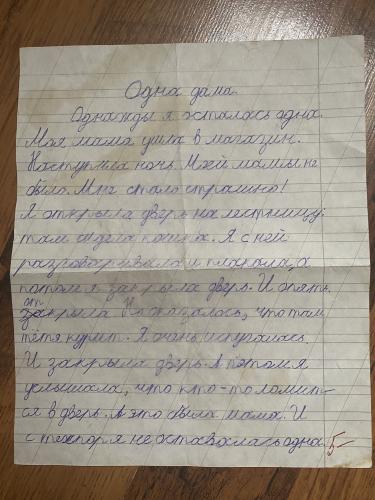 Одна дома.
Однажды я осталась одна.
Моя мама ушла в магазин.
Наступила ночь. Моей мамы не
было. Мне стало страшно!
Я открыла дверь на лестницу:
там сидела кошка. Я с ней
разговаривала и плакала, а
потом я закрыла дверь. И опять
открыла. И оказалось, что там
тётя курит. Я очень испугалась.
И закрыла дверь. А потом я
услышала, что кто-то ломит-
ся в дверь. А это была мама. И
с тех пор я не оставалась одна. 5-